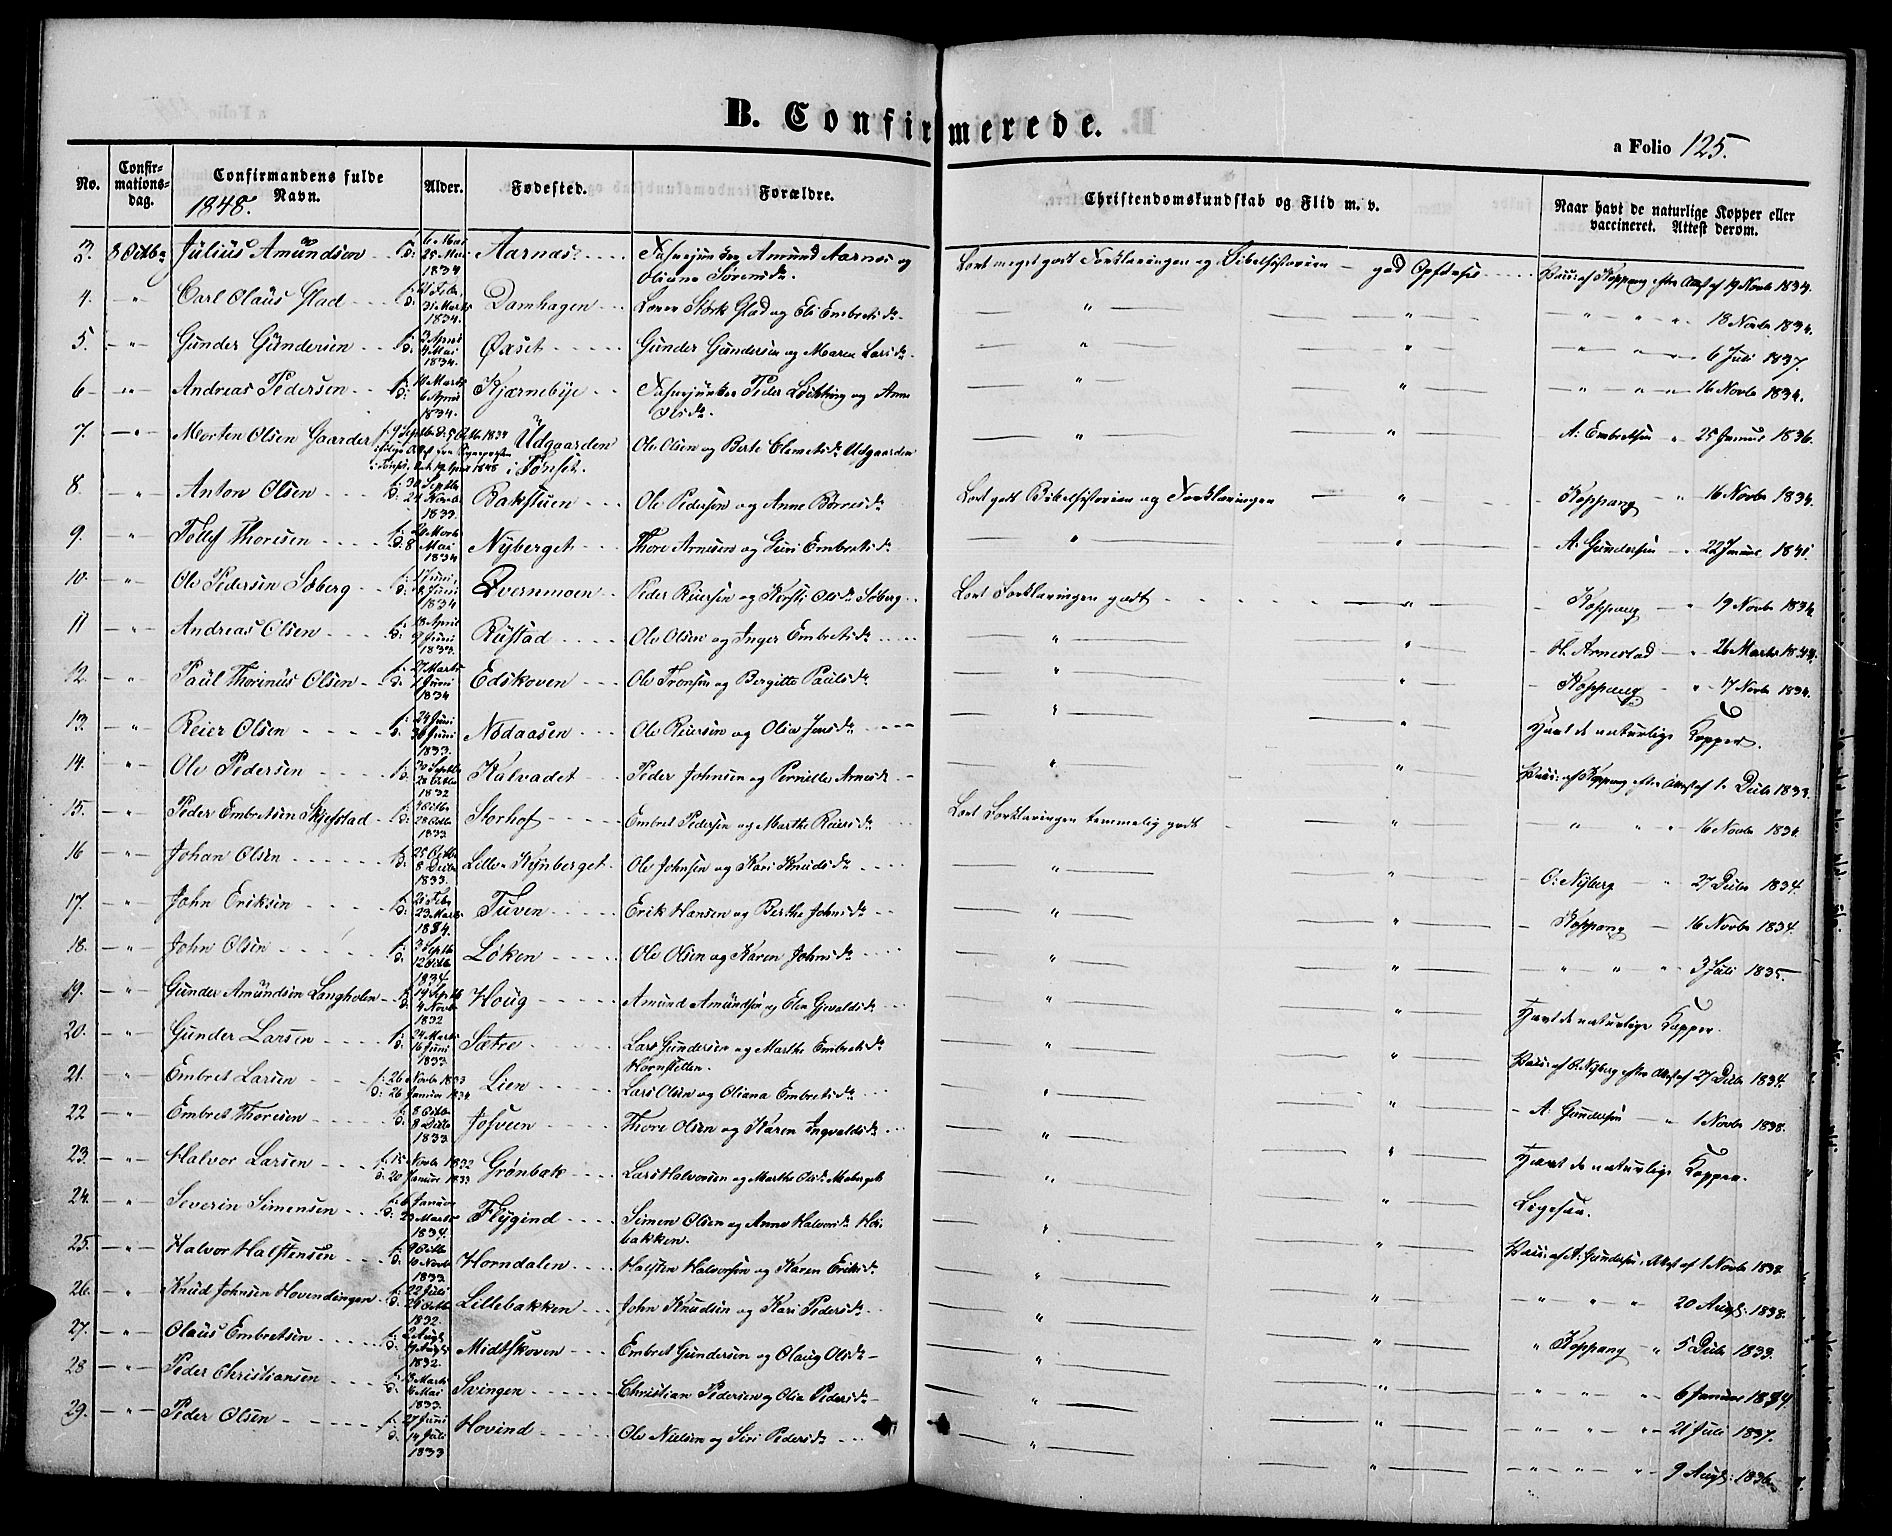 B. Confirmerede.
a Folio 125.
No.
Confirmations-dag.
Confirmandens fulde Navn.
1848.
Alder.
Fødested.
Forældre.
Christendomskundskab og Flid m. v.
Naar havt de naturlige Kopper eller vaccineret. Attest derom.
3. 8 Octbr Julius Amundsen f: 6 Mai d: 25 Mai 1834 Aarnæs Amund Aarnæs og Oliane Sørensdr. Lært meget godt Forklaringen og Bibelhistorien — god Opførsel Vacc: af Koppang efter Attest af 19 Novbr 1834.
4. — " — Carl Olaus Glad f: 21 Febr d: 31 Marts 1834. Damhagen Stork Glad og Eli Embretsdr — " — " — 18 Novbr 1834.
5. — " — Gunder Gundersen f: 3 April d: 4 Mai 1834. Øxset Gunder Gundersen og Maren Larsdr. — " — " — 6 Juli 1837.
6 — " — Andreas Pedersen f: 10 Marts d: 6 April 1834. Kjærnebye Peder og Anne Olsdr. — " — " — 16 Novbr 1834.
7. — " — Morten Olsen Gaarder f: 9 Septbr d: 5 Octbr 1834 Udgaarden i Tønset. Ole Olsen og Berte Clemetsdr Udgaarden — " — " — A: Embretsen " 25 Januar 1836.
8. — " Anton Olsen f: 30 Septbr d: 24 Novbr 1833. Bakstuen Ole Pedersen og Anne Børresdr Lært godt Bibelhistorien og Forklaringen — " — Koppang — " 16 Novbr 1834.
9. — " Tollef Thoresen f: 20 Marts d: 8 Mai 1834 Nyberget Thore Arnesen og Guri Embretsdr — " — " — A: Gundersen — " 22 Januar
10. — " — Ole Pedersen Søberg f: 1 Juni d: 8 Juni 1834 Qvernmoen Peder Reiersen og Kersti Olsdr Søberg Lært Forklaringen godt — " — Koppang — " 19 Novbr 1834
11 — " — Andreas Olsen f: 18 April d: 9 Juni 1833. Rustad Ole Olsen og Inger Embretsdr — " — " — H. Arnestad — " 26 Marts 1844.
12. — " — Paul Thorinus Olsen f: 27 Marts d: 1 Juni 1834 Edskoven Ole Tronsen og Bergitte Paulsdr — " — " — Koppang — " 17 Novbr 1834.
13. — " — Reier Olsen f: 24 Juni d: 30 Juni 1833. Nodaasen Ole Reiersen og Olia Jonsdr — " — " — Havt de naturlige Kopper.
14. — " Ole Pedersen f: 20 Septbr d: 28 Octbr 1832 Kalvadet Peder Johnsen og Pernille Arnesdr — " — " — Vacc: af Koppang efter Attest af 1 Decbr 1833.
15. — " Peder Embretsen Skjefstad f: Octbr d: 28 Octbr 1833 Storhof Embret Pedersen og Marthe Reiersdr Lært Forklaringen temmelig godt — " — " " 16 Novbr 1834.
16 — " Johan Olsen f: 25 Octbr d: 8 Decbr 1833. Lille-Kynberget Ole Johnsen og Kari Knudsdr — " — " — O: Nyberg — " 27 Decbr 1834.
17. — " — John Eriksen f: 21 Febr d: 23 Marts 1834. Tuven Erik Hansen og Berthe Johnsdr — " — " — Koppang — 16 Novbr 1834.
18. — " — John Olsen f: 3 Septbr d: 12 Octbr 1834. Løken Ole Olsen og Karen Johnsdr — " — " — " " — 3 Juli 1835
19. — " — Gunder Amundsen Langholen f: 14 Septbr d: 4 Novbr 1832 Houg Amund Amundsen og Elen — " — " — Havt de naturlige Kopper.
20. — " — Gunder Larsen f: 24 Marts d: 16 Juni 1833. Sætre Lars Gundersen og Marthe Embretsdr Hornstillen. — " — " — Vacc: af O. Nyberg efter Attest af 27 Decbr 1834.
21. — " — Embret Larsen f: 26 Novbr 1833 d: 26 Januar 1834 Lien Lars Olsen og Oliana Embretsdr — " — " — A: Gundersen — " 1 Novbr 1838.
22 — " — Embret Thoresen f: 8 Octbr d: 8 Decbr 1833. Thore Olsen og Karen Ingvaldsdr — " — " — Havt de naturlige Kopper.
23. — " — Halvor Larsen f: 15 Novbr 1832 d: 20 Januar 1833 Grønbæk Lars Halvorsen og Marthe Olsdr Moberget — " — " — Ligesaa.
24. — " — Severin Simensen f: 6 Januar d: 23 Marts 1834. Flygind Simen Olsen og Anne Halvorsdr Hoibakken. — " — " — Vacc: af A: Gundersen, Attest af 1 Novbr
25. — " — Halvor Halstensen f: 9 Octbr d: 10 Novbr 1833 Horndalen Halsten Halvorsen og Karen Eriksdr — " — " — 20 Augst: 1838.
26. — " Knud Johnsen Hovendengen f: 22 Juli d: 26 Octbr 1832. Lillebakken John Knudsen og Kari Pedersdr — " — " — " Koppang — " 5 Decbr 1833.
27. — " — Olaus Embretsen f: 2 Augst d: 19 Augst 1832. Midtskoven Embret Gundersen og Olaug Olsdr — " — " — 6 Januar 1834
28 — " — Peder Christiansen f: 3 Marts d: 16 Mai 1833. Svingen Christian Pedersen og Olia Pedersdr — " — " — 21 Juli 1837.
29. — " — Peder Olsen f: 27 Juni d: 14 Juli 1833 Hovind Ole Nielsen og Siri Pedersdr — " — " — 9 Augst: 1836